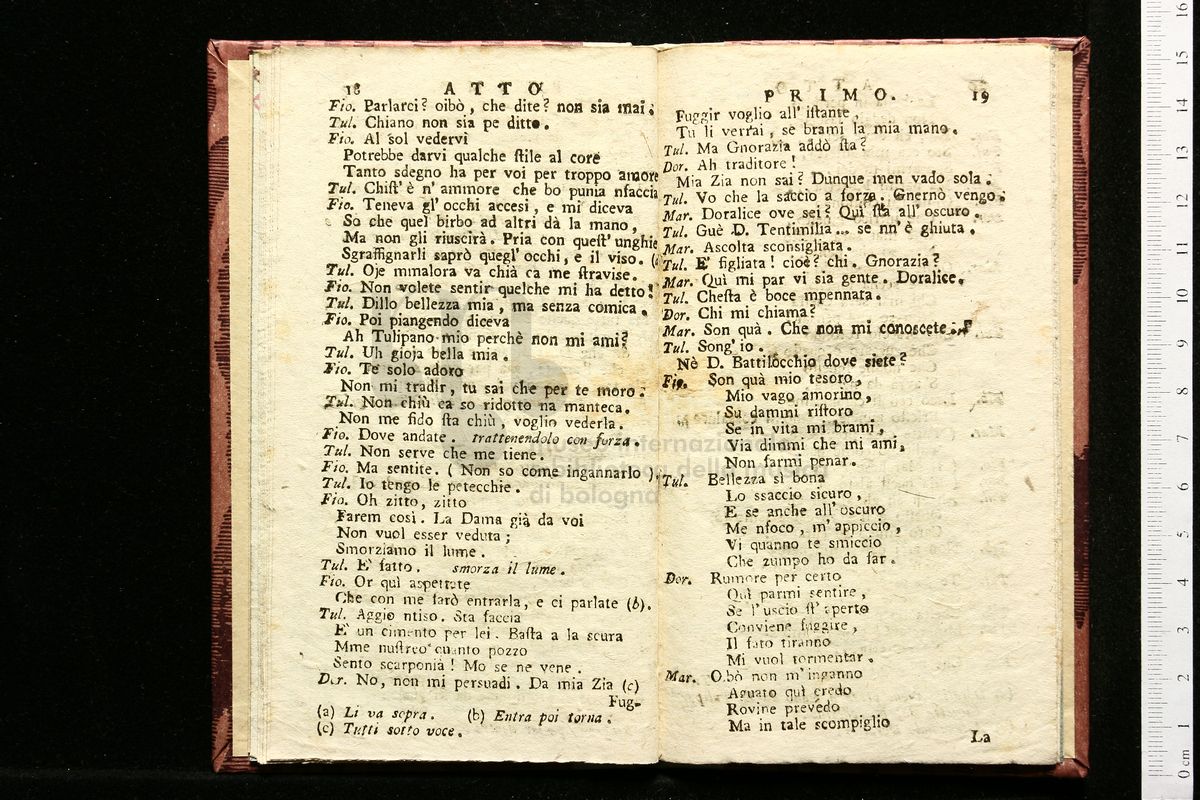 18 ATTO
Fio. Parlarci? oibò, che dite? non sia mai.
Tul. Chiano non sia pe ditto.
Fio. Al sol vedervi
Potrebbe darvi qualche ſtile al core
Tanto sdegno ha per voi per troppo amore
Tul. Chiſt' è n' ammore che bo punia nfaccia
Fio. Teneva gl' occhi accesi, e mi diceva
So che quel birbo ad altri dà la mano,
Ma non gli riuscirà. Pria con queſt' unghie
Sgraffignarli saprò quegl' occhi, e il viso. (a
Tul. Oje mmalora va chià ca me ſtravise.
Fio. Non volete sentir quelche mi ha detto!
Tul. Dillo bellezza mia, ma senza comica.
Fio. Poi piangendo diceva
Ah Tulipano mio perchè non mi ami?
Tul. Uh gioja bella mia.
Fio. Te solo adoro
Non mi tradir, tu sai che per te moro.
Tul. Non chiù ca so ridotto na manteca.
Non me fido ſta chiù, voglio vederla.
Fio. Dove andate. trattenendolo con forza.
Tul. Non serve che me tiene.
Fio. Ma sentite. (Non so come ingannarlo).
Tul. Io tengo le petecchie.
Fio. Oh zitto, zitto
Farem così. La Dama già da voi
Non vuol esser veduta;
Smorziamo il lume.
Tul. E' fatto. smorza il lume.
Fio. Or quì aspettate
Che con me farò entrarla, e ci parlate (b).
Tul. Aggio ntiso. Sta faccia
E' un cimento per lei. Baſta a la scura
Mme nuſtreo quanto pozzo
Sento scarponià! Mo se ne vene.
Dor. No, non mi persuadi. Da mia Zia (c)
Fug-
(a) Li va sopra. (b) Entra poi torna.
(c) Tutti sotto voce.
PRIMO. 19
Fuggir voglio all' iſtante,
Tu li verrai, se brami la mia mano.
Tul. Ma Gnorazia addò ſta?
Dor. Ah traditore!
Mia Zia non sai? Dunque men vado sola.
Tul. Vo che la saccio a forza. Gnernò vengo.
Mar. Doralice ove sei? Quì ſta all' oscuro.
Tul. Guè D. Tentimilia... se nn' è ghiuta.
Mar. Ascolta sconsigliata.
Tul. E' figliata! cioè? chi. Gnorazia?
Mar. Quì mi par vi sia gente. Doralice.
Tul. Cheſta è boce mpennata.
Dor. Chi mi chiama?
Mar. Son quà. Che non mi conoscete.
Tul. Song' io.
Nè D. Battilocchio dove siete?
Fio. Son quà mio tesoro,
Mio vago amorino,
Su dammi riſtoro
Se in vita mi brami,
Via dimmi che mi ami,
Non farmi penar.
Tul. Bellezza sì bona
Lo ssaccio sicuro,
E se anche all' oscuro
Me nfoco, m' appiccio,
Vi quanno te smiccio
Che zumpo ho da far.
Dor. Rumore per certo
Quì parmi sentire,
Se l' uscio ſt' aperto
Conviene fuggire,
Il fato tiranno
Mi vuol tormentar.
Mar. Oibò non m' inganno
Aguato quì credo
Rovine prevedo
Ma in tale scompiglio
La
museo internazionale
della musica
di bologna
0 cm 1 2 3 4 5 6 7 8 9 10 11 12 13 14 15 16